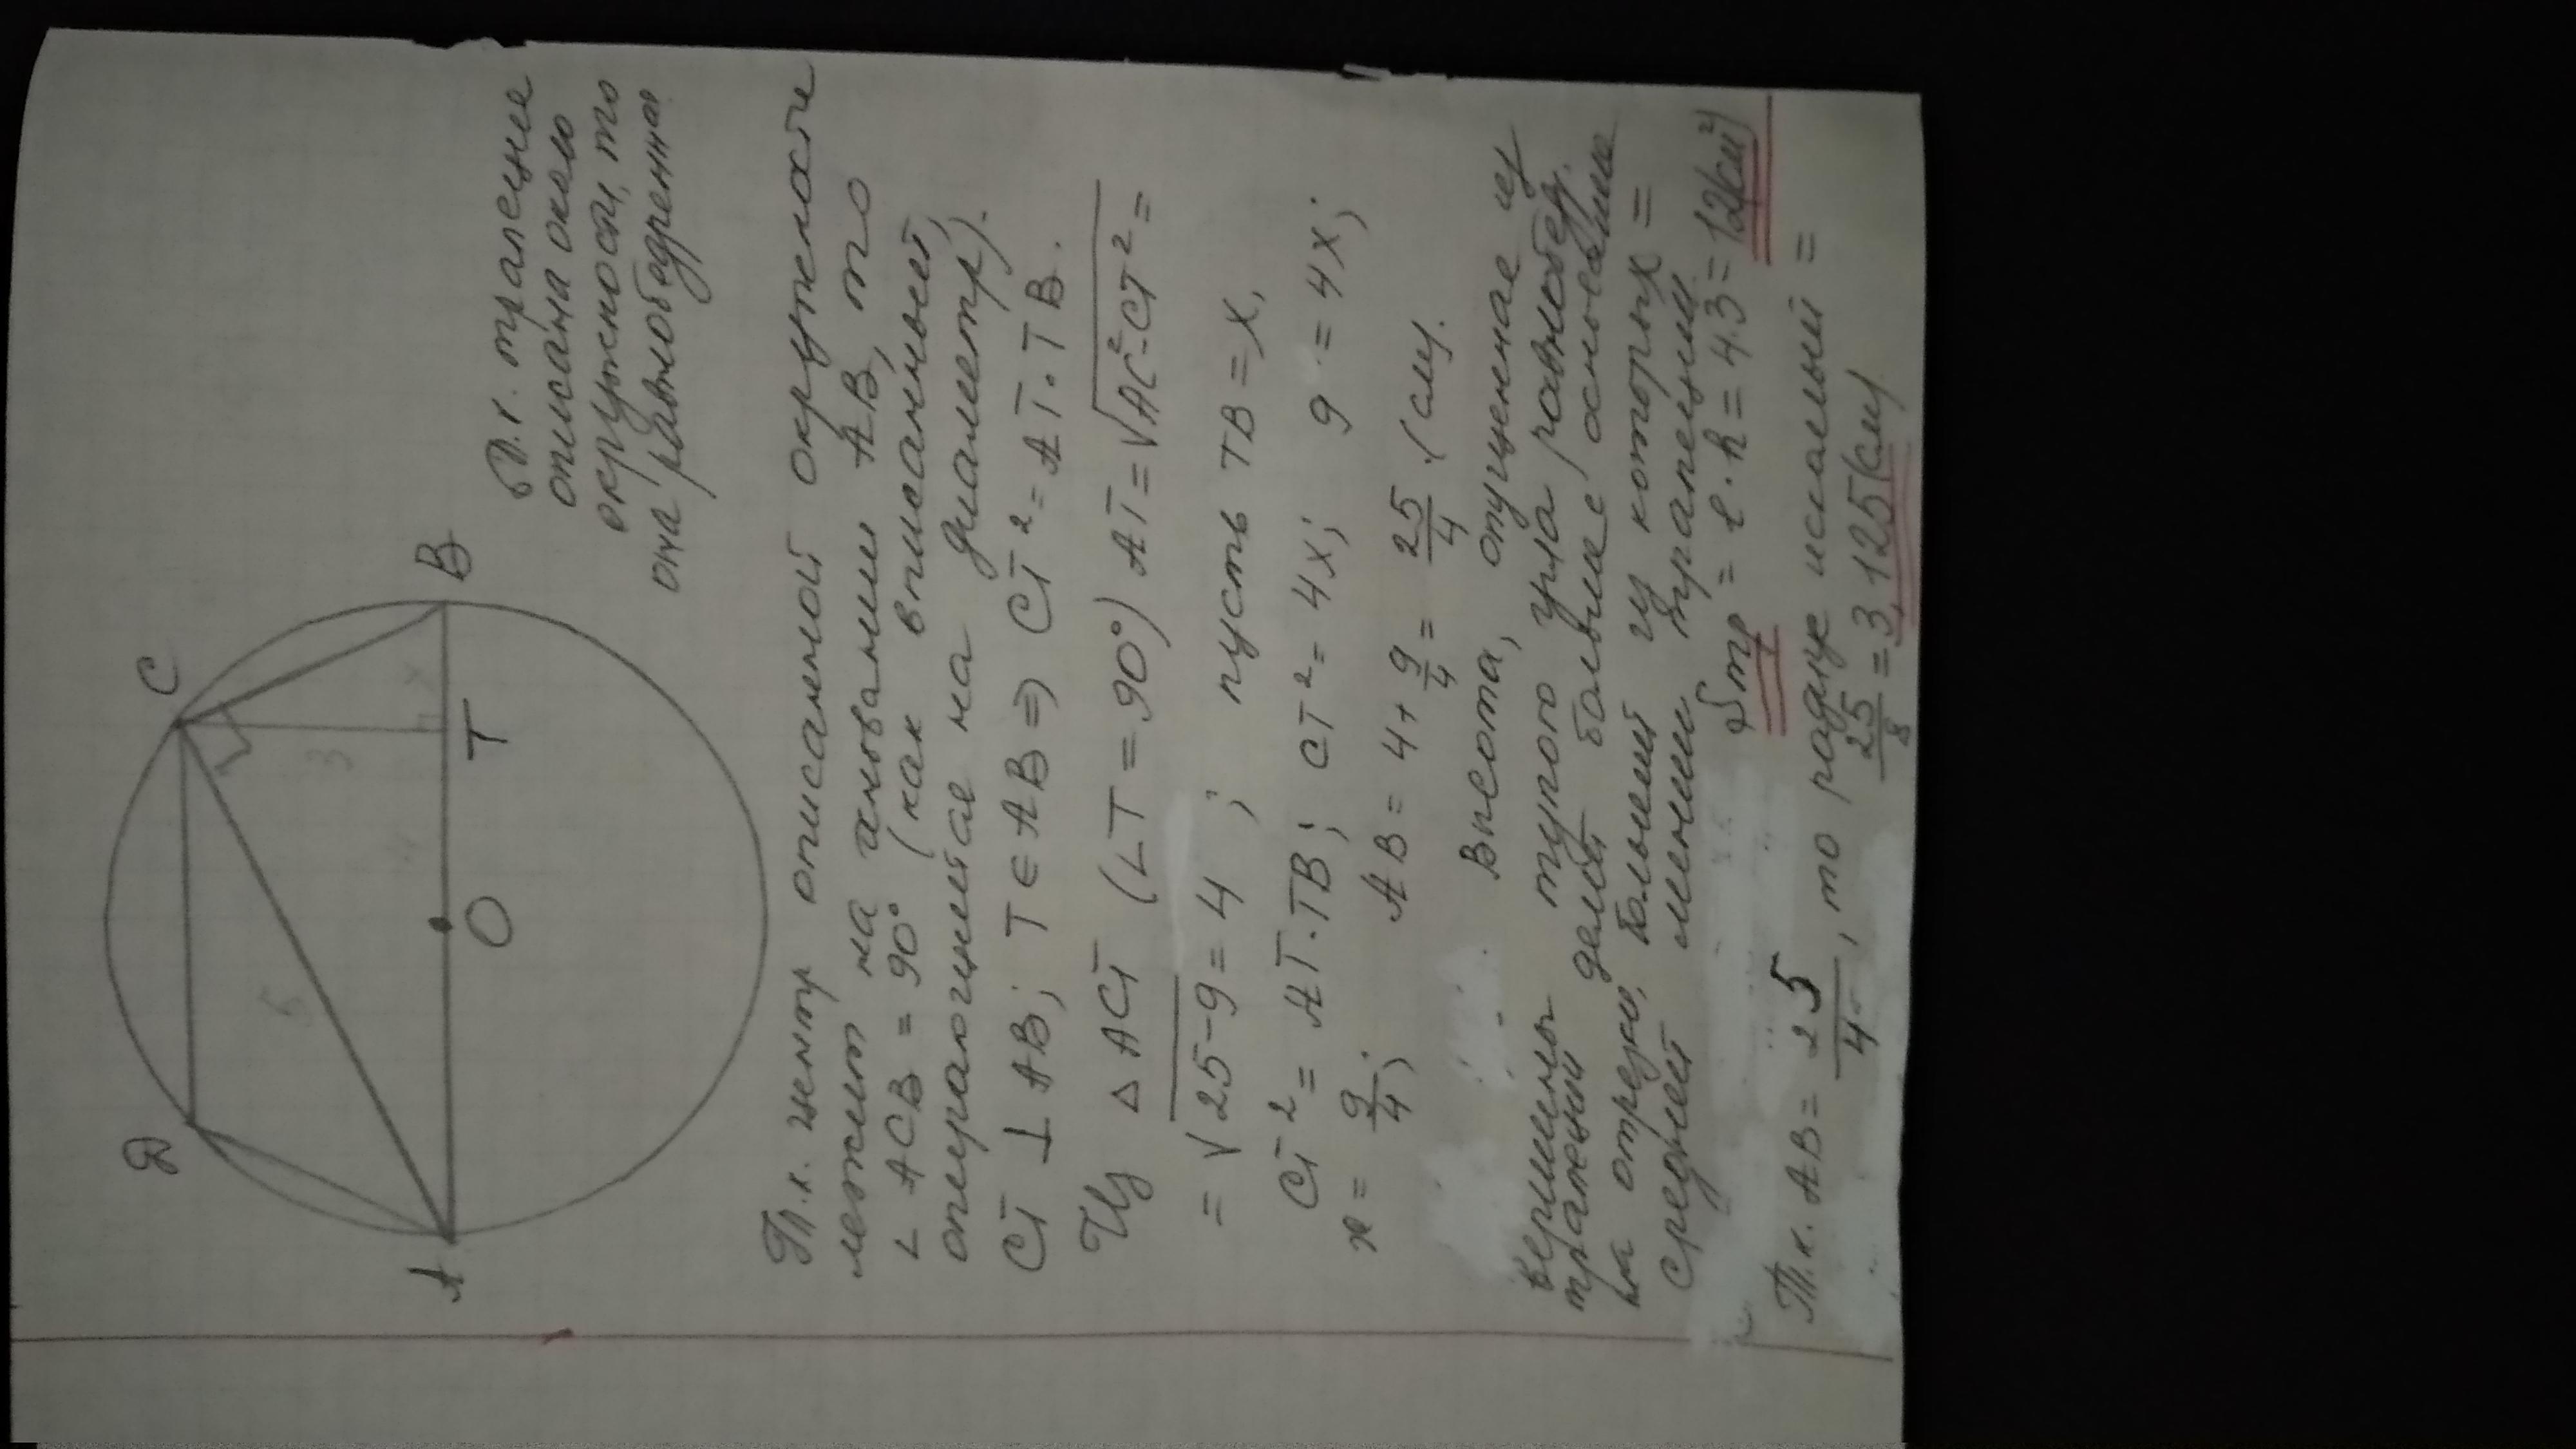 D
C
5
3
4
x
A
O
T
B
Т.к. трапеция
описана около
окружности, то
она равнобедренная
Т.к. центр описанной окружности
лежит на основании AB, то
∠ ACB = 90° (как вписанный,
опирающийся на диаметр).
CT ⊥ AB; T ∈ AB ⇒ CT² = AT · TB.
Из △ ACT (∠T = 90°) AT = √AC² - CT² =
= √25-9 = 4 ; пусть TB = x,
CT² = AT · TB; CT² = 4x; 9 = 4x;
x = 9/4; AB = 4 + 9/4 = 25/4 (см).
Высота, опущенная из
вершины тупого угла равнобедр.
трапеции делит большее основание
на отрезки, больший из которых =
средней линии трапеции
Sтр = l · h = 4·3 = 12(см²)
Т.к. AB = 25/4, то радиус искомый =
25/8 = 3,125(см)